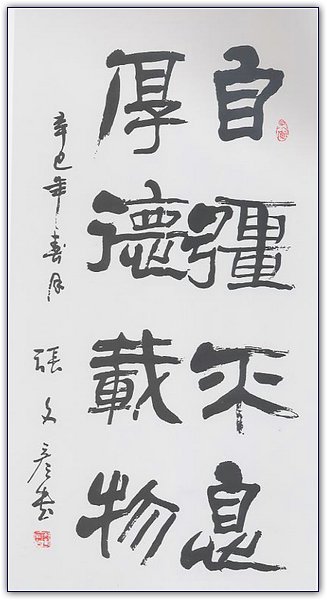 自彊不息
厚德載物
辛巳年春月
張文彥書